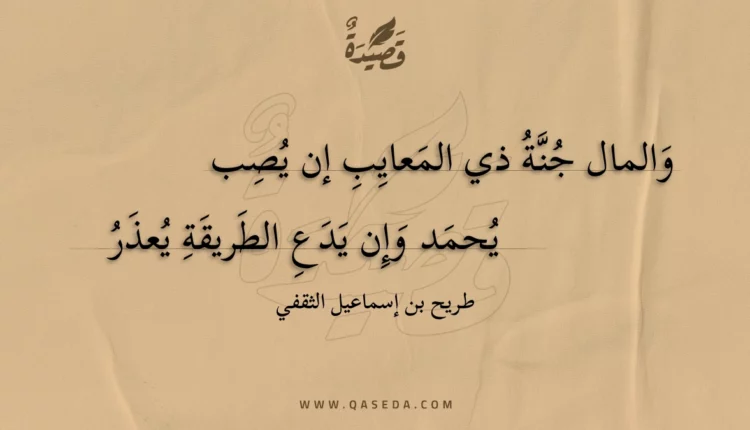 قَصِيدَةٌ
وَالمال جُنَّةُ ذي المَعايِبِ إن يُصِب
يُحمَد وَإِن يَدَعِ الطَريقَةِ يُعذَرُ
طريح بن إسماعيل الثقفي
WWW.QASEDA.COM